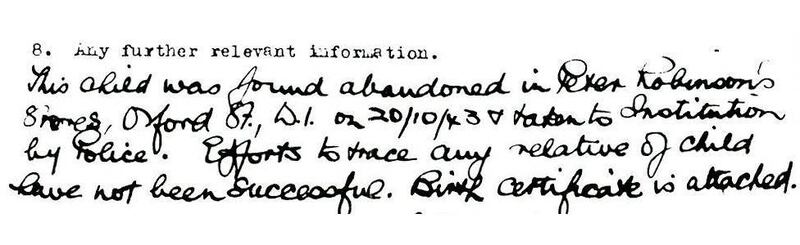 8. Any further relevant information.
This child was found abandoned in Peter Robinson's
Stores, Oxford St., W.1. on 20/10/43 & taken to Institution
by Police. Efforts to trace any relative of child
have not been successful. Birth certificate is attached.